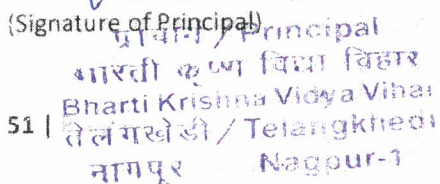 (Signature of Principal)
प्राचार्य / Principal
भारती कृष्ण विद्या विहार
Bharti Krishna Vidya Vihar
51 | तेलंगखेडी / Telangkhedi
नागपुर Nagpur-1